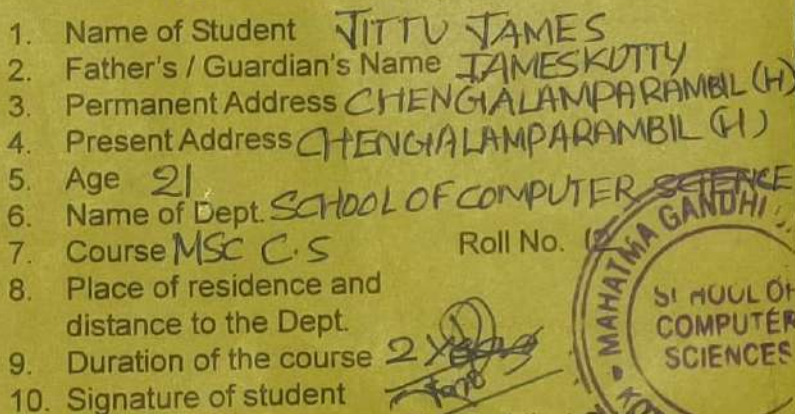 1. Name of Student JITTU JAMES
2. Father's / Guardian's Name JAMESKUTTY
3. Permanent Address CHENGALAMPARAMBIL (H)
4. Present Address CHENGALAMPARAMBIL (H)
5. Age 21
6. Name of Dept. SCHOOL OF COMPUTER SCIENCE
7. Course MSC C.S Roll No. 12
8. Place of residence and
distance to the Dept.
9. Duration of the course 2 Years
10. Signature of student
MAHATMA GANDHI
SCHOOL OF
COMPUTER
SCIENCES